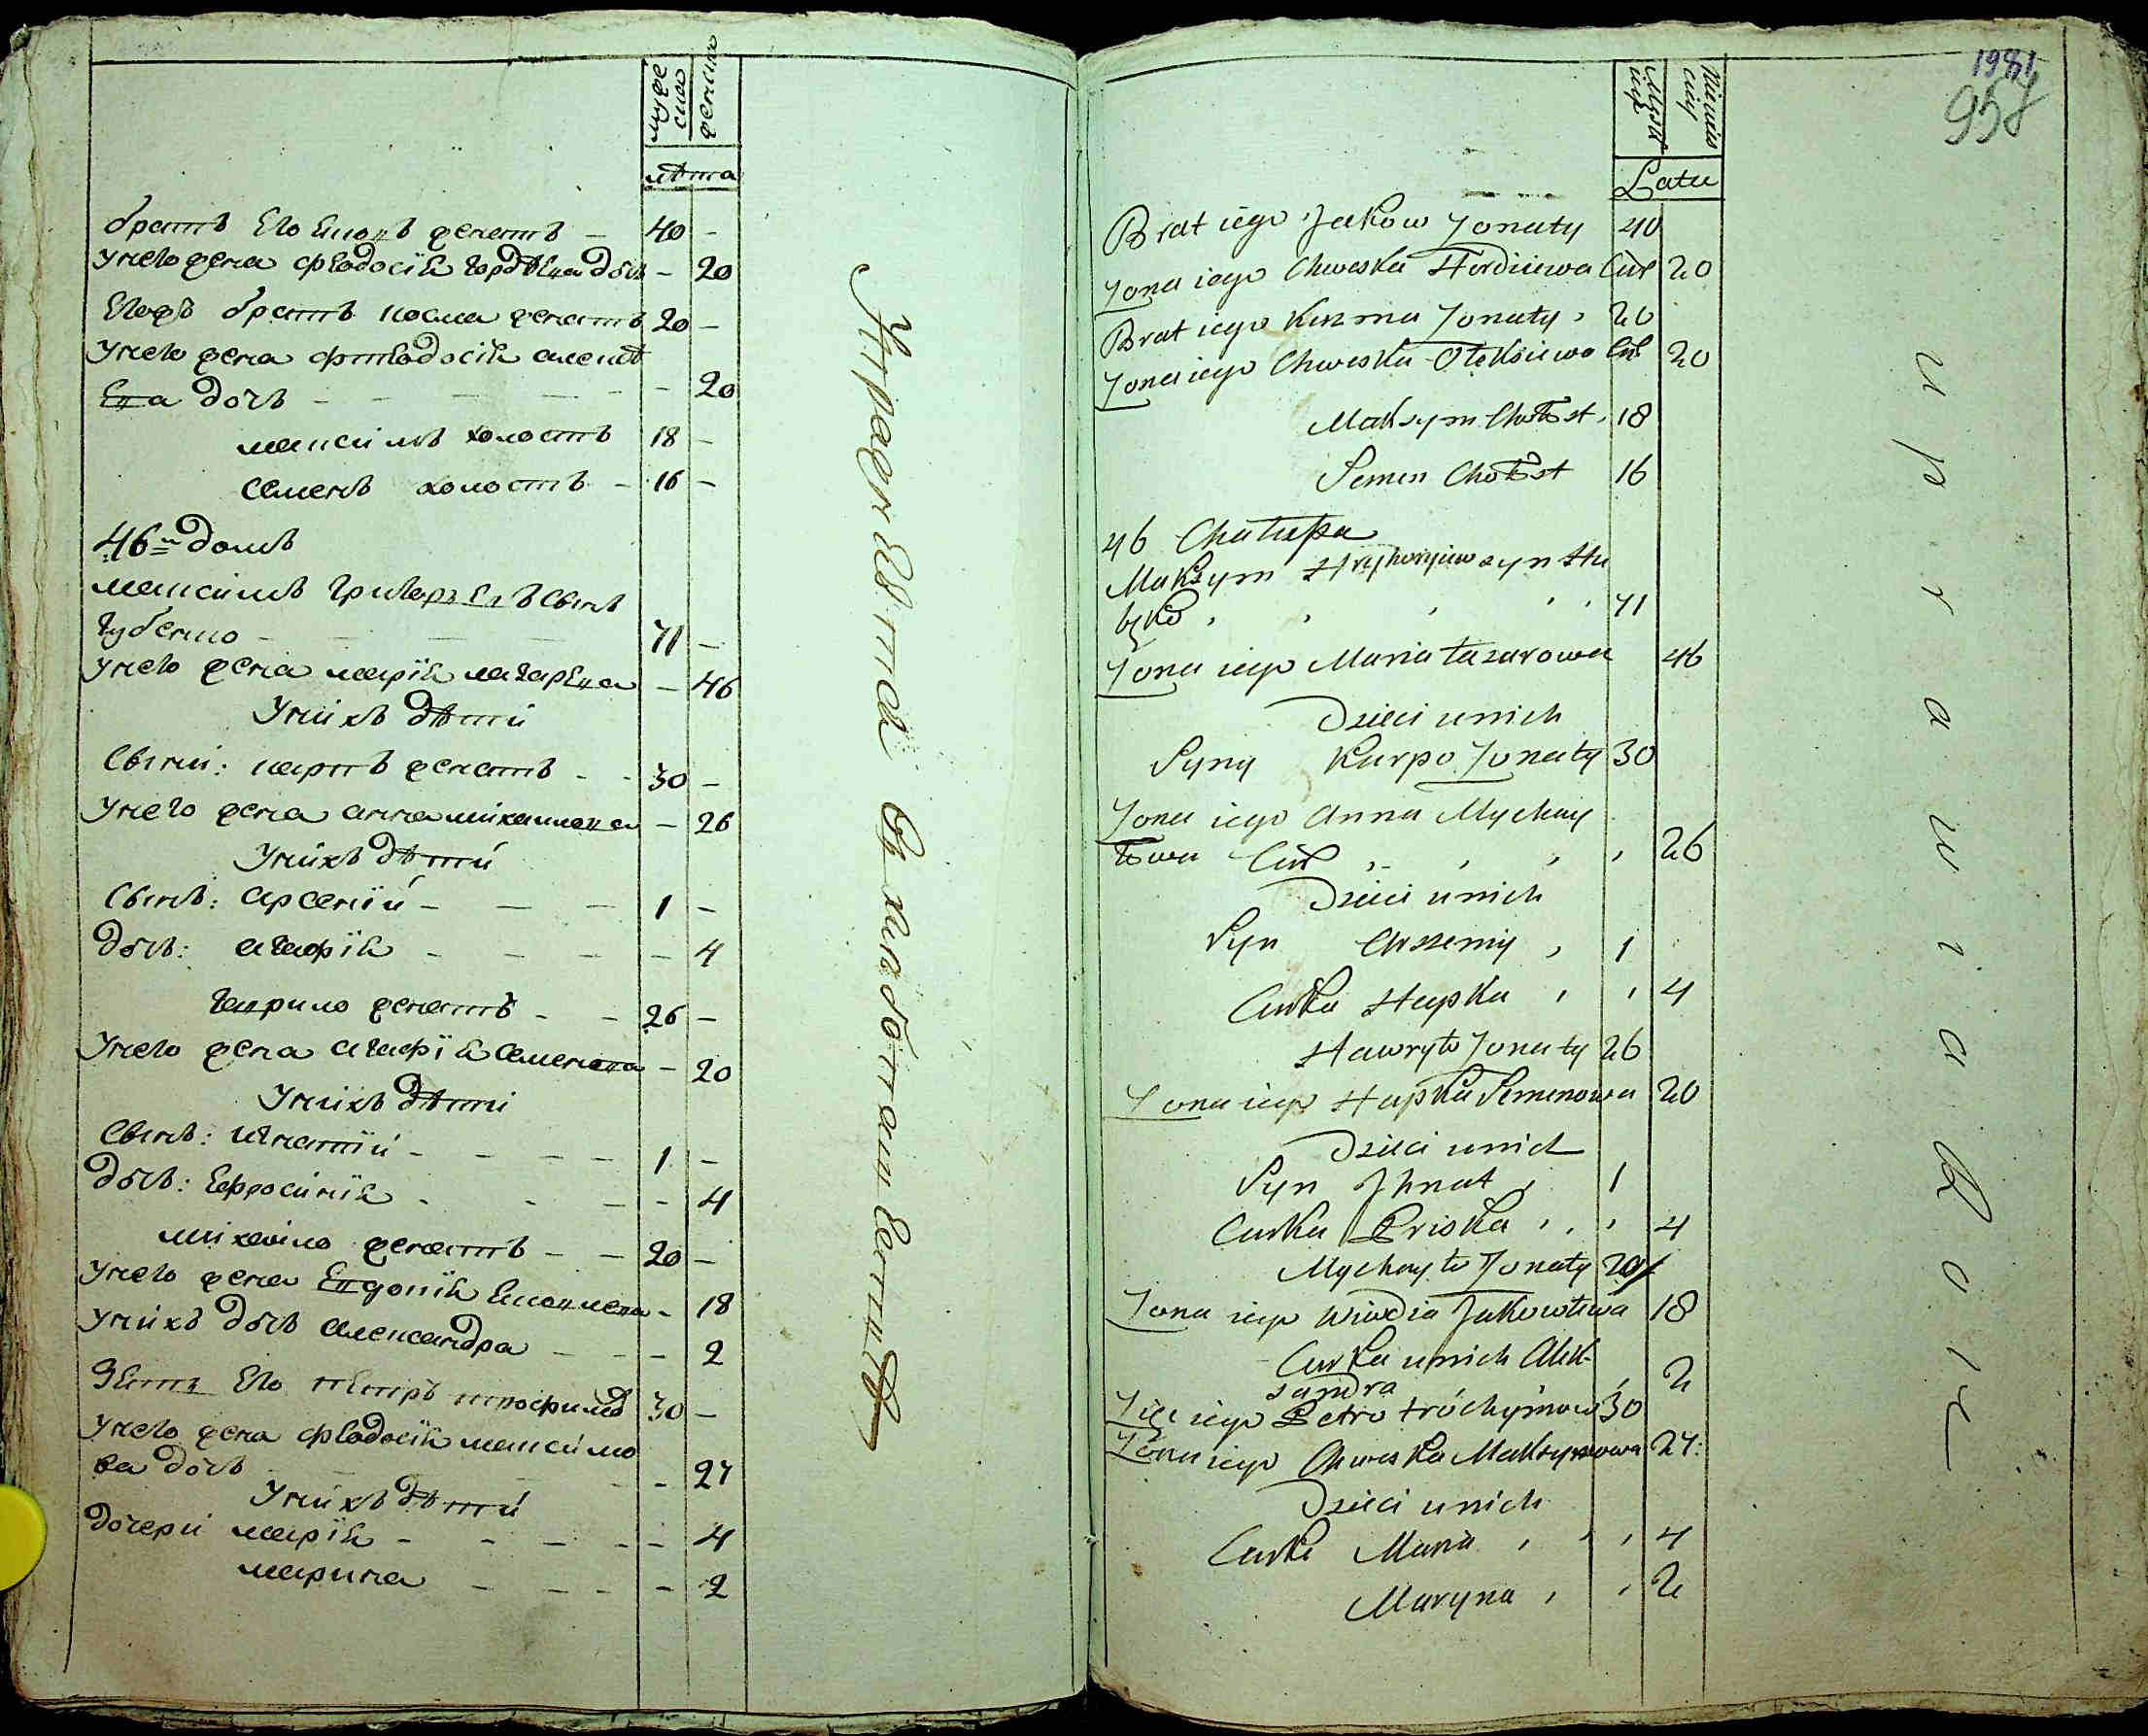 муже
ска
женска
лѣта
братъ Его Яковъ женатъ - 40 -
Унего жена Феодосія Гордѣева дочь - 20
Егожъ братъ косма женатъ 20 -
Унего жена Феодосія алексѣ
Ева дочь - - - - - 20
максимъ холостъ 18 -
семенъ холостъ - 16 -
46й домъ
максимъ Григорьевъ сынъ
Губенко - - - 71 -
Унего жена марія лазарева - 46
Унихъ дѣти
сыни: карпъ женатъ - - 30 -
Унего жена анна михайлова - 26
Унихъ дѣти
сынъ: арсеній - - - 1 -
дочь: агафія - - - - 4
Гаврило женатъ - - 26 -
Унего жена агафія семенова - 20
Унихъ дѣти
сынъ: игнатій - - - - 1 -
дочь: Ефросинія - - - - 4
михайло женатъ - - 20 -
Унего жена Евдокія Яковлева - 18
Унихъ дочь александра - - - 2
Зять Его петръ трофимовъ 30 -
Унего жена феодосія максимо
ва дочь - - - - 27
Унихъ дѣти
дочери марія - - - - - 4
марина - - - - 2
1981
957
Męsk
Latu
Brat iego Jakow Żonaty 40
Żona iego Chweska Hordiiewa Cur 20
Brat iego Kuzma Żonaty , 20
Żona iego Chweska Oleksiiewa Cur 20
Maksym Chołost , 18
Semen Chołost 16
46 Chałupa
Maksym Hryhoryiew syn Hu
bko , , , , , 71
Żona iego Maria Łazarowa 46
Dzieci u nich
Syny Karpo Żonaty 30
Żona iego Anna Mychay
łowa Cur , , , , 26
Dzieci u nich
Syn Arszeniy , 1
Curka Hapka , , 4
Hawryło Żonaty 26
Żona iego Hapka Semenowa 20
Dzieci u nich
Syn Ihnat , 1
Curka Priska , , , 4
Mychayło Żonaty 20
Żona iego Wiwdia Jakowlewa 18
Curka u nich Alek-
sandra , 2
Zięć iego Petro Trochymow 30
Żona iego Chweska Maksymowa 27
Dzieci u nich
Curki Maria , , , 4
Maryna , , 2